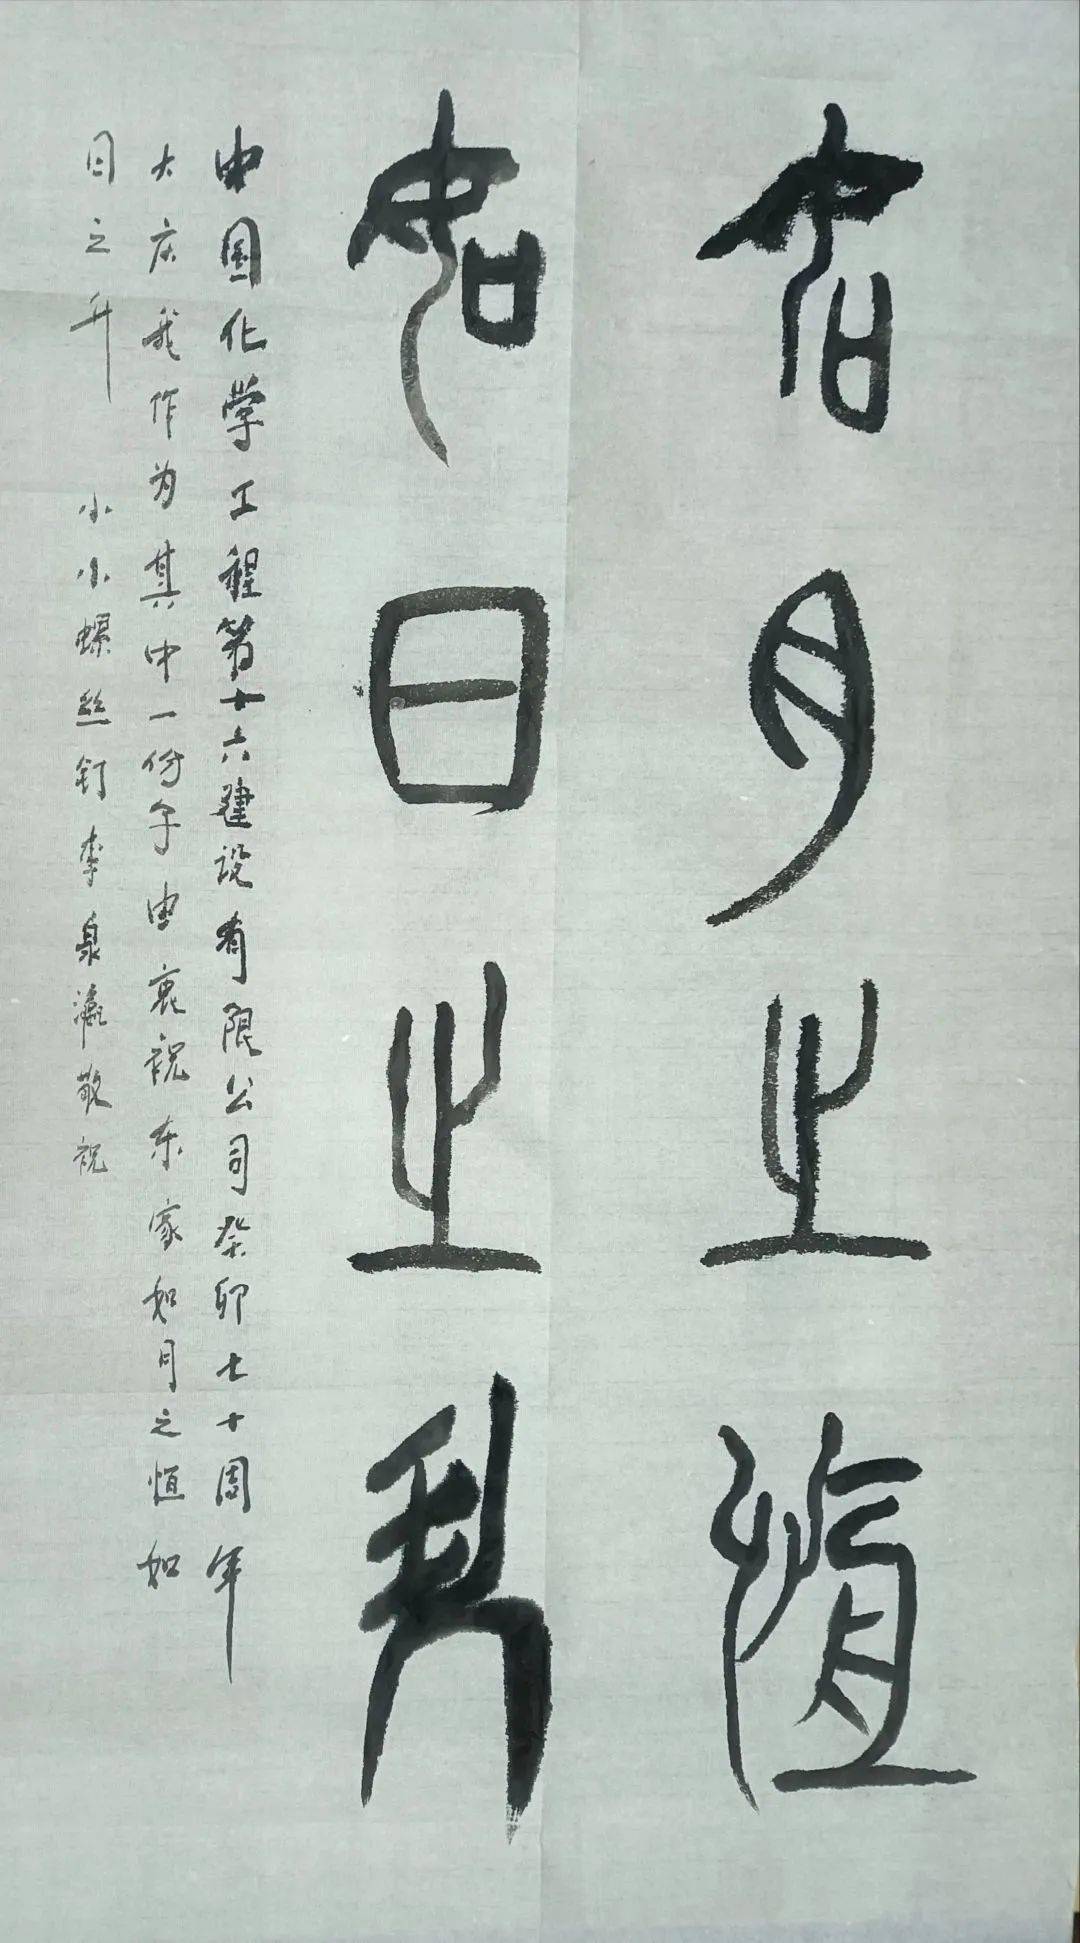 如月之恒
如日之升
中国化学工程第十六建设有限公司癸卯七十周年
大庆我作为其中一份子由衷祝东家如月之恒如
日之升 小小螺丝钉李泉瀛敬祝